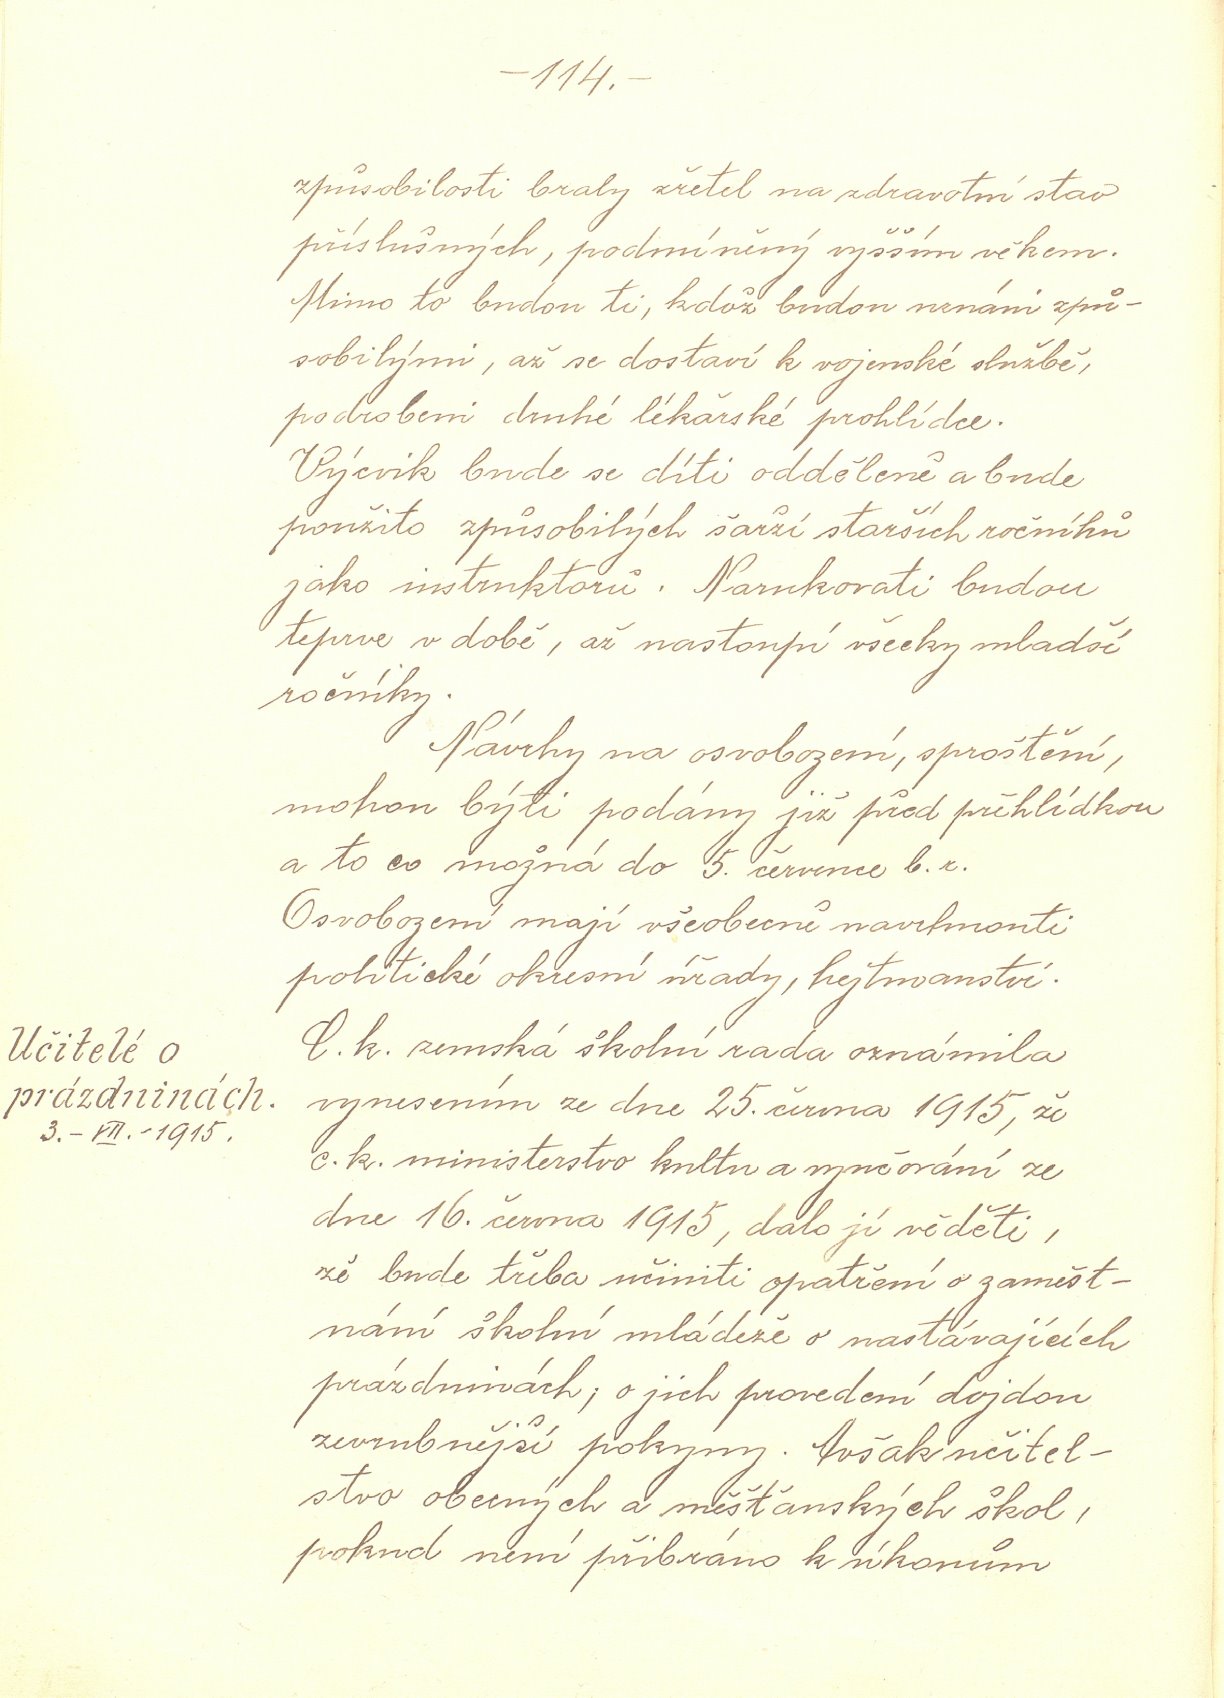 -114.-
způsobilosti braly zřetel na zdravotní stav
příslušných, podmíněný vyšším věkem.
Mimo to budou ti, kdož budou uznáni způ-
sobilými, až se dostaví k vojenské službě,
podrobeni druhé lékařské prohlídce.
Výcvik bude se díti odděleně a bude
použito způsobilých šarží starších ročníků
jako instruktorů. Narukovati budou
teprve v době, až nastoupí všecky mladší
ročníky.
Návrhy na osvobození, sproštění,
mohou býti podány již před přehlídkou
a to co možná do 5. července b. r.
Osvobození mají všeobecně navrhnouti
politické okresní úřady, hejtmanství.
Učitelé o
prázdninách.
3.-VII.-1915.
C. k. zemská školní rada oznámila
vynesením ze dne 25. června 1915, že
c. k. ministerstvo kultu a vyučování ze
dne 16. června 1915, dalo jí věděti,
že bude třeba učiniti opatření o zaměst-
nání školní mládeže o nastávajících
prázdninách; o jich provedení dojdou
zevrubnější pokyny. Avšak učitel-
stvo obecných a měšťanských škol,
pokud není přibráno k úkonům